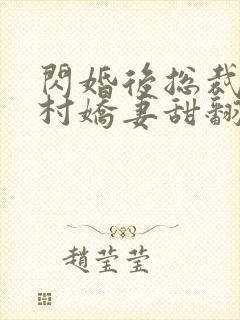 閃婚後總裁
村嬌妻甜翻
趙瑩瑩